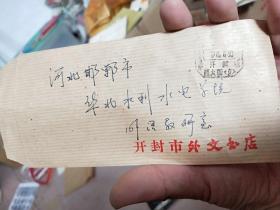 河北邯郸市
华北水利水电学院
教研室
开封市外文书店
开封